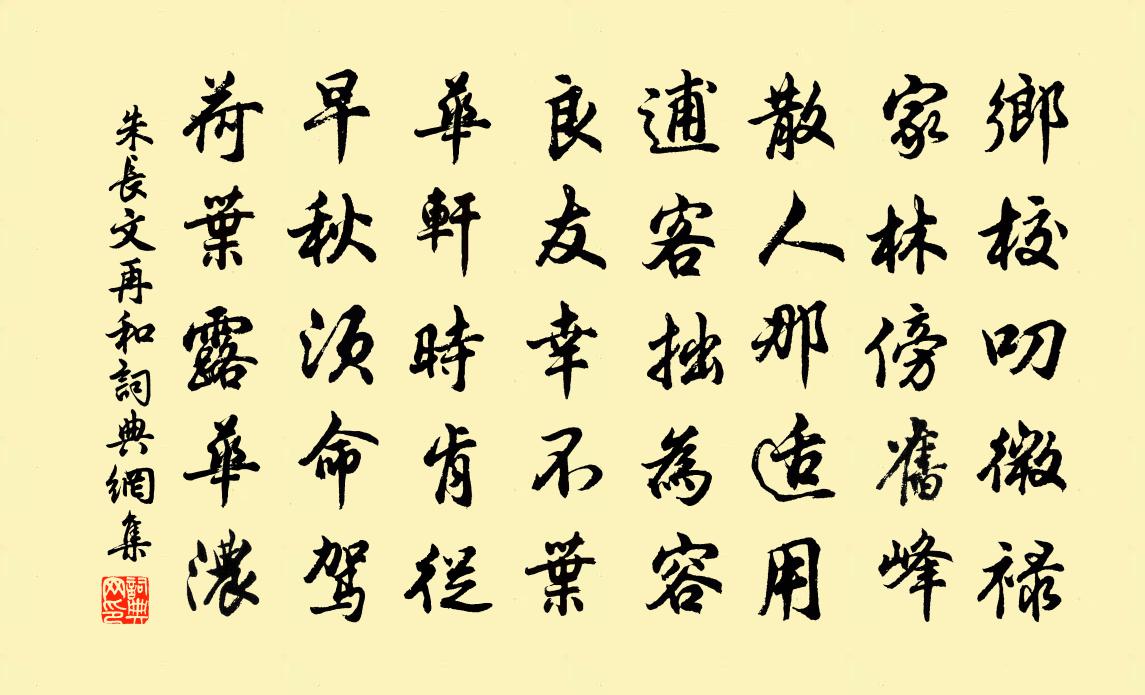 鄉校叨微祿
家林傍舊峰
散人那适用
逋客拙為容
良友幸不葉
華軒時肯從
早秋須命駕
荷葉露華濃
朱長文再和詞典網集
詞典網印